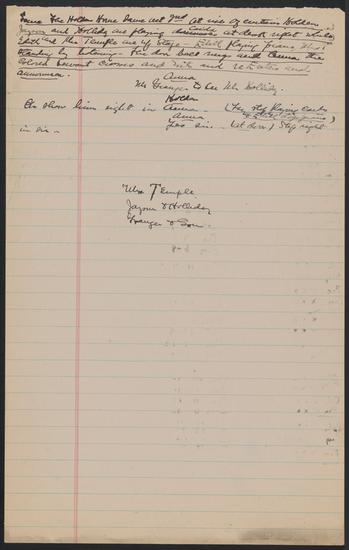 Same The Holden Home Same Act 2nd At rise of curtain Holden
Jaynor and Holliday are playing Cards at desk right while
Edith and Mrs Temple are up stage - Edith playing piano Mrs T
by listening - The door bell rings and Anna the
Colored servant crosses and exits and returns and
announces.
Anna
Mr Granger to see Mr Holliday.
Holden
show him right in Anna - (They stop playing cards
Anna
Yes sir - (at door) Step right
in sir -
Mrs Temple
Jaynor & Holliday
Granger & Son